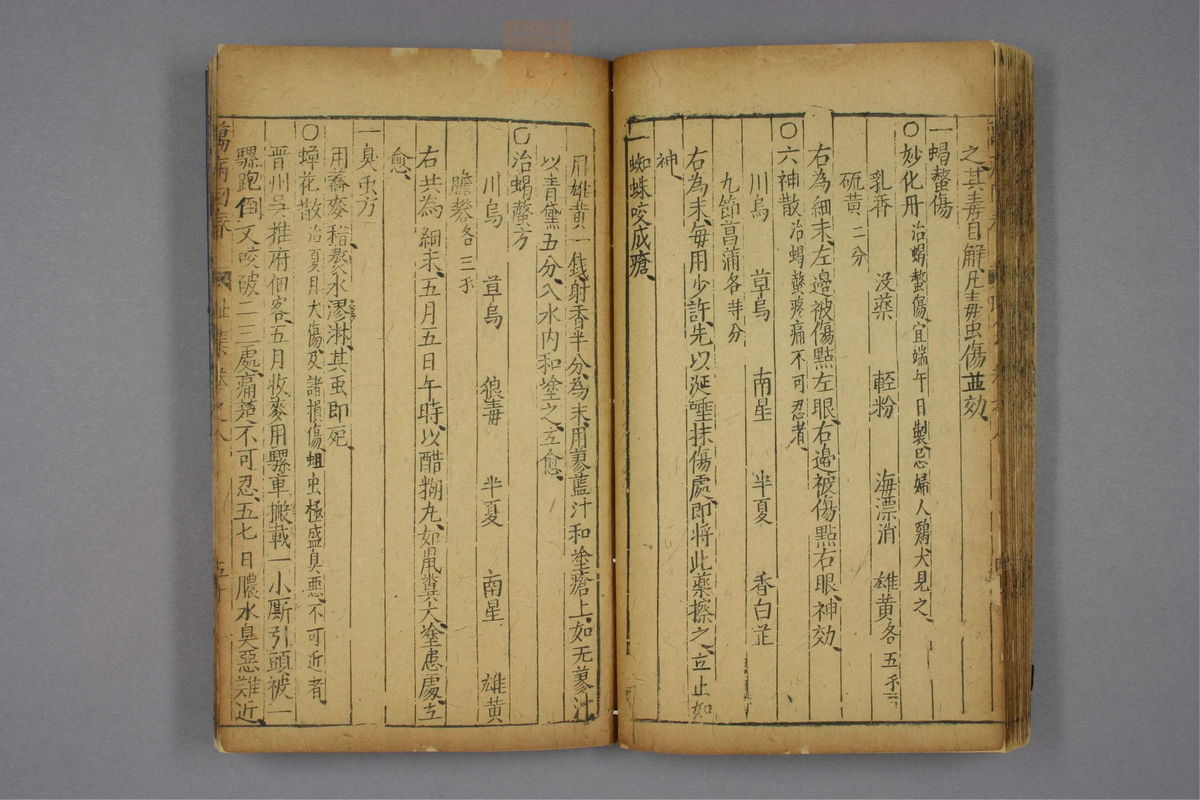 之其毒自解凡毒虫傷並効
一蝎螫傷
〇妙化丹治蝎螫傷宜端午日製忌婦人鷄犬見之
乳香 没藥 輕粉 海漂消 雄黄各五分
硫黄二分
右為細末左邉被傷點左眼右邉被傷點右眼神効
〇六神散治蝎螫疼痛不可忍者
川烏 草烏 南星 半夏 香白芷
九節菖蒲各等分
右為末每用少許先以涎唾抹傷處即将此藥擦之立止如
神
一蜘蛛咬成瘡
用雄黄一錢射香半分為末用蓼藍汁和塗瘡上如无蓼汁
以青黛五分入水内和塗之立愈
〇治蝎螫方
川烏 草烏 狼毒 半夏 南星 雄黄
膽礬各三分
右共為細末五月五日午時以醋糊丸如鼠糞大塗患處立
愈
一臭虫方
用蕎麥稭熬水澪淋其虫即死
〇蟬花散治夏月犬傷及諸損傷蛆虫極盛臭惡不可近者
晋州吳推府佃客五月收麥用騾車搬載一小厮引頭被一
騾跑倒又咬破二三處痛楚不可忍五七日膿水臭惡難近
萬病回春